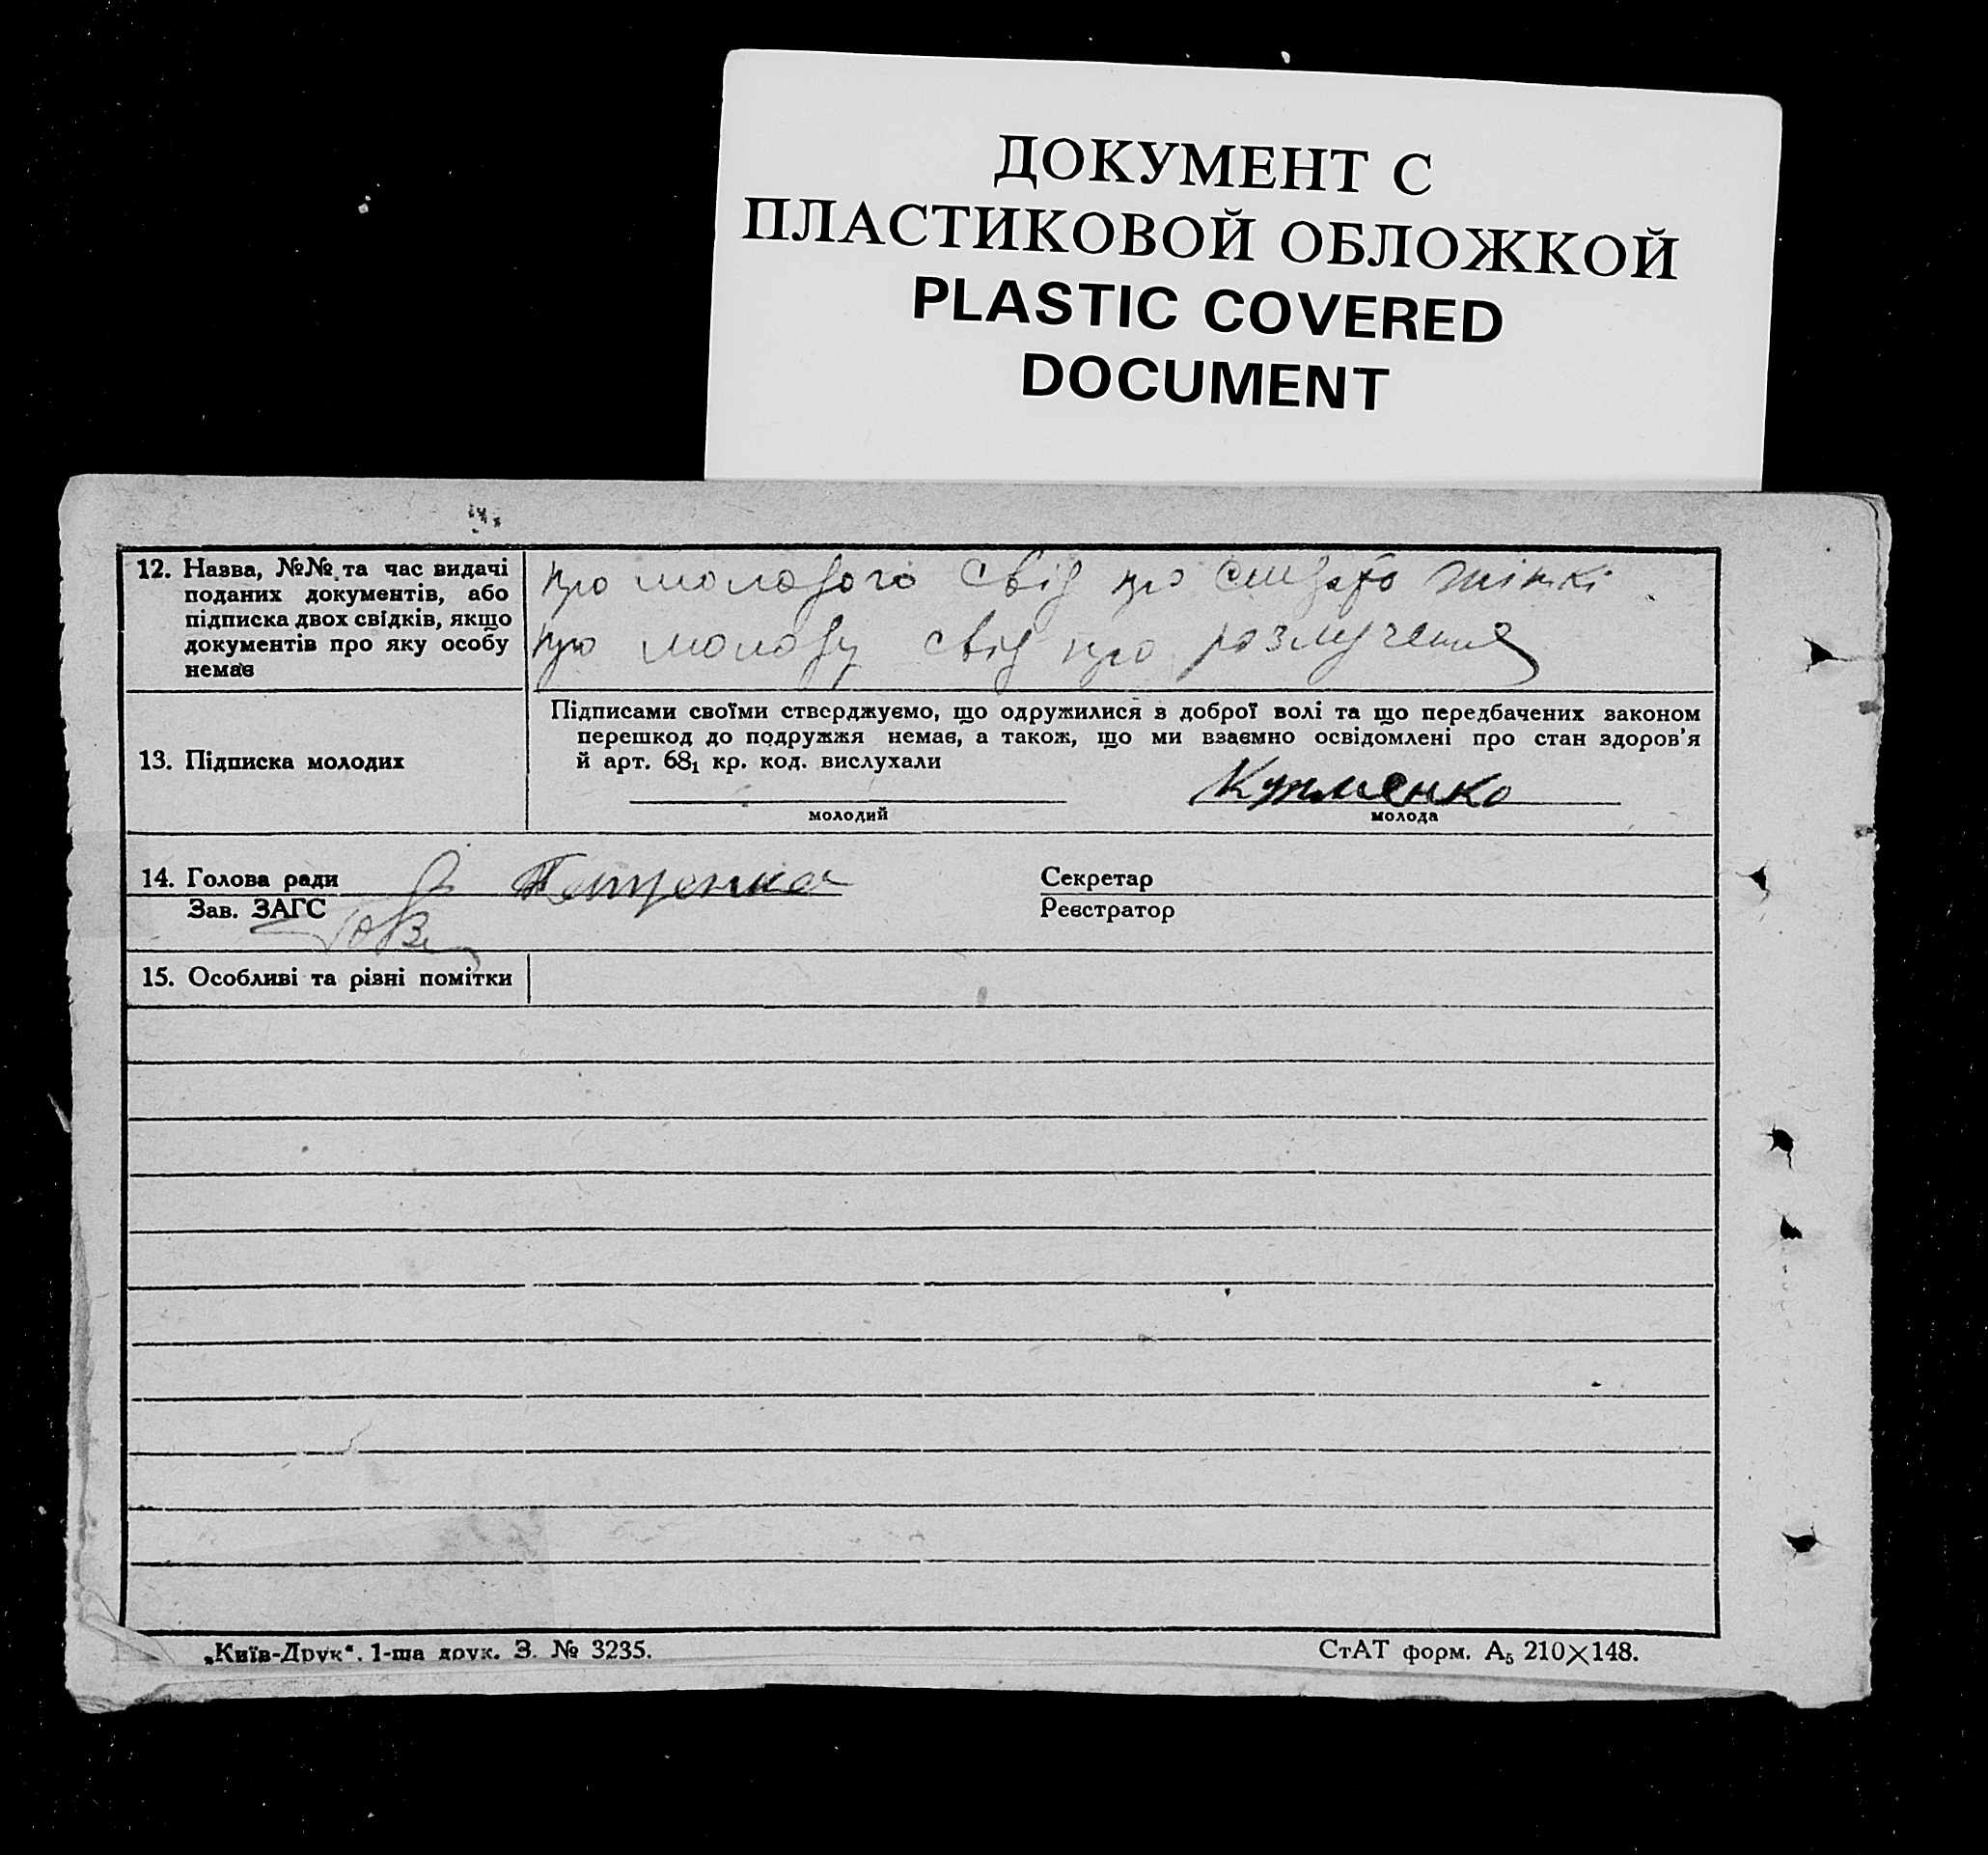 ДОКУМЕНТ С
ПЛАСТИКОВОЙ ОБЛОЖКОЙ
PLASTIC COVERED
DOCUMENT
12. Назва, №№ та час видачі
поданих документів, або
підписка двох свідків, якщо
документів про яку особу
немає
про молодого свід про жінкі
про молоду свід про розлучення
13. Підписка молодих
Підписами своїми стверджуємо, що одружилися з доброї волі та що передбачених законом
перешкод до подружжя немає, а також, що ми взаємно освідомлені про стан здоров'я
й арт. 68₁ кр. код. вислухали
Кузменко
молодий
молода
14. Голова ради
Зав. ЗАГС
Секретар
Реєстратор
15. Особливі та різні помітки
„Київ-Друк“. 1-ша друк. З. № 3235.
СтАТ форм. А₅ 210×148.